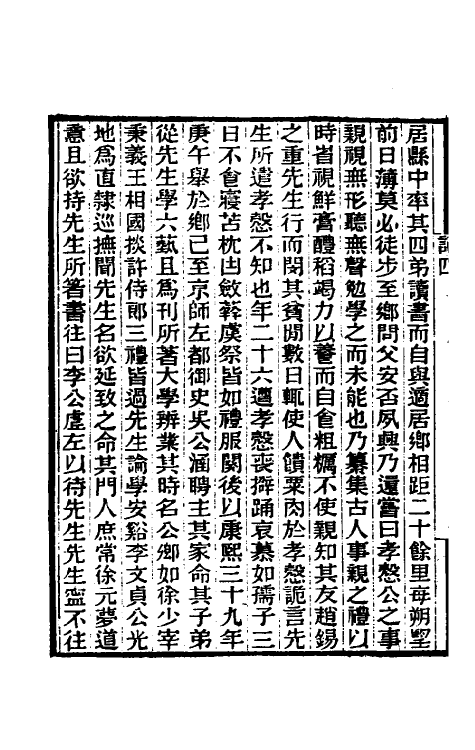 居縣中率其四弟讀書而自與適居鄉相距二十餘里每朔望
前日薄莫必徒步至鄉問父安否夙興乃還嘗曰孝慤公之事
親視無形聽無聲勉學之而未能也乃纂集古人事親之禮以
時省視鮮膏醴稻竭力以養而自食粗糲不使親知其友趙錫
之重先生行而閔其貧閒數日輒使人饋粟肉於孝慤詭言先
生所遣孝慤不知也年二十六遘孝慤喪擗踊哀慕如孺子三
日不食寢苫枕凷斂斡虞祭皆如禮服闋後以康熙三十九年
庚午舉於鄉已至京師左都御史吳公涵聘主其家命其子弟
從先生學六蓺且爲刊所著大學辨業其時名公鄉如徐少宰
秉義王相國掞許侍郎三禮皆過先生論學安谿李文貞公光
地爲直隸巡撫聞先生名欲延致之命其門人庶常徐元夢道
意且欲持先生所箸書往曰李公虛左以待先生先生寍不往